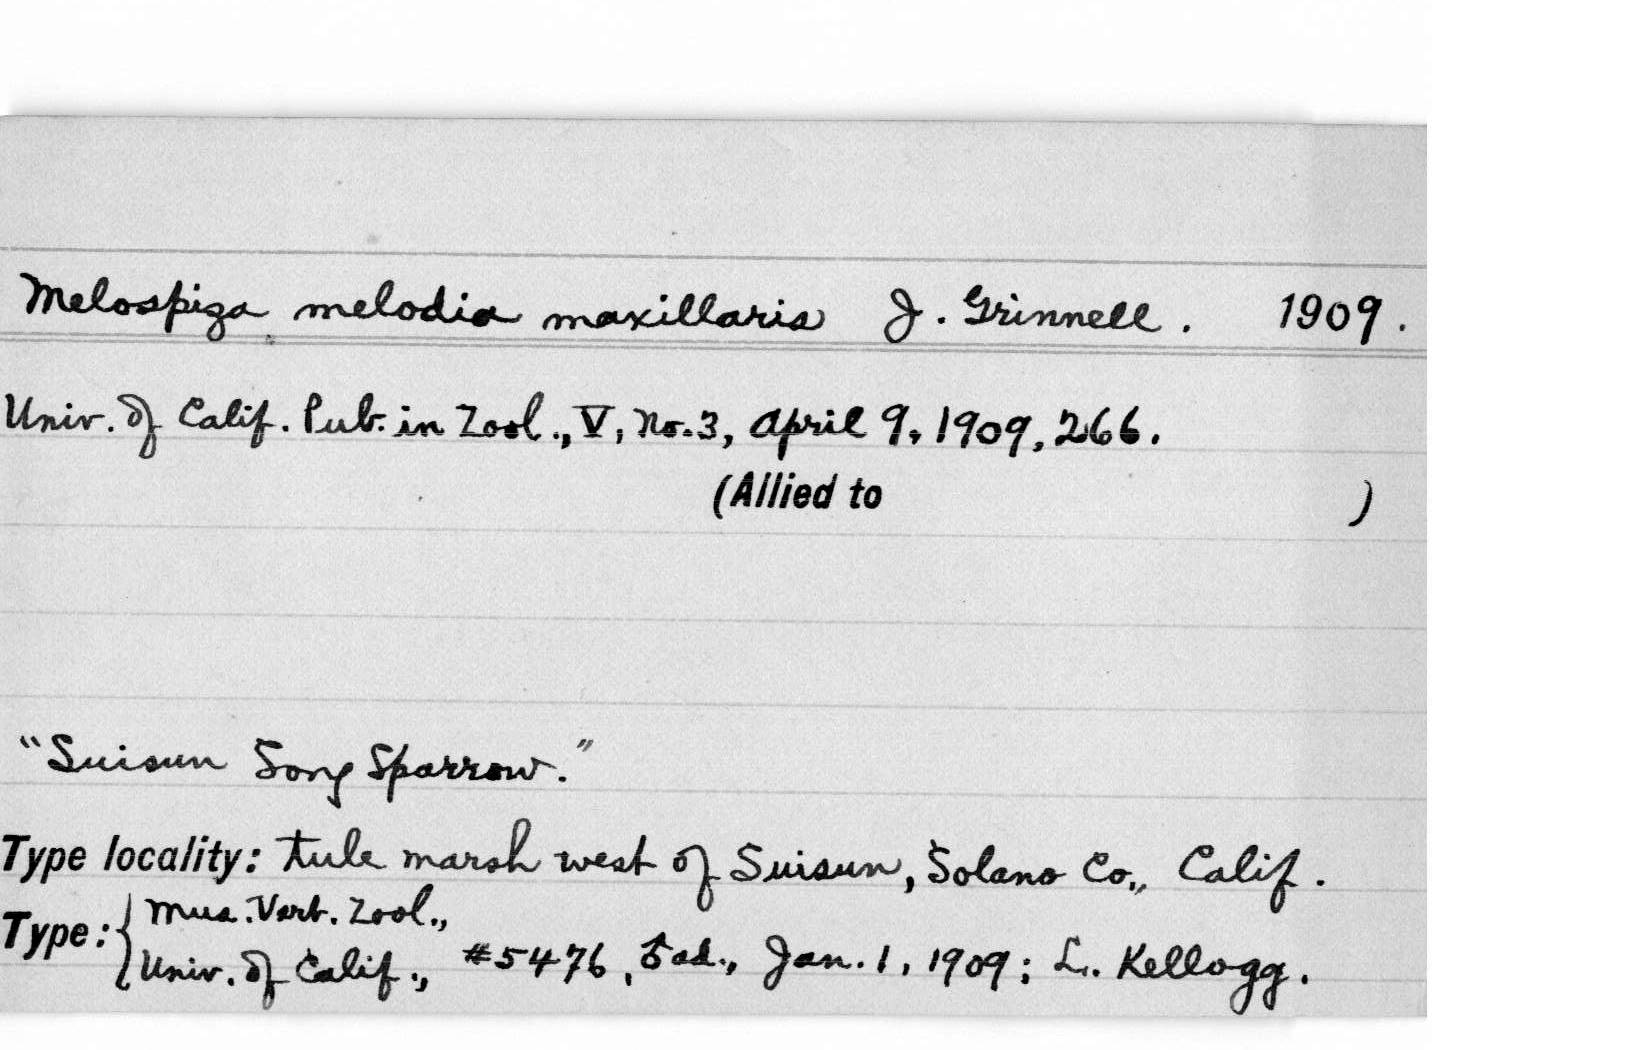 Melospiza melodia maxillaris J. Grinnell. 1909.
Univ. of Calif. Pub. in Zool., V, No. 3, April 9, 1909, 266.
(Allied to )
"Suisun Song Sparrow."
Type locality: tule marsh west of Suisun, Solano Co., Calif.
Type: { Mus. Vert. Zool.,
Univ. of Calif., #5476, ad., Jan. 1, 1909; L. Kellogg.